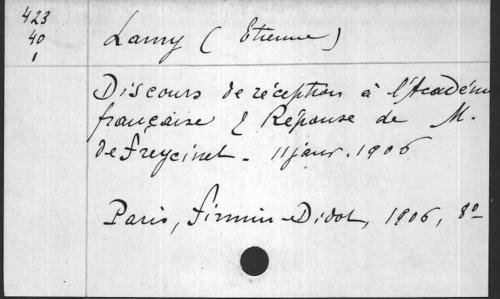 423
40
1
Lamy (Etienne)
Discours de réception à l'Académie
française & Réponse de M.
de Freycinet. 11 janv. 1906
Paris, Firmin-Didot, 1906, 8º